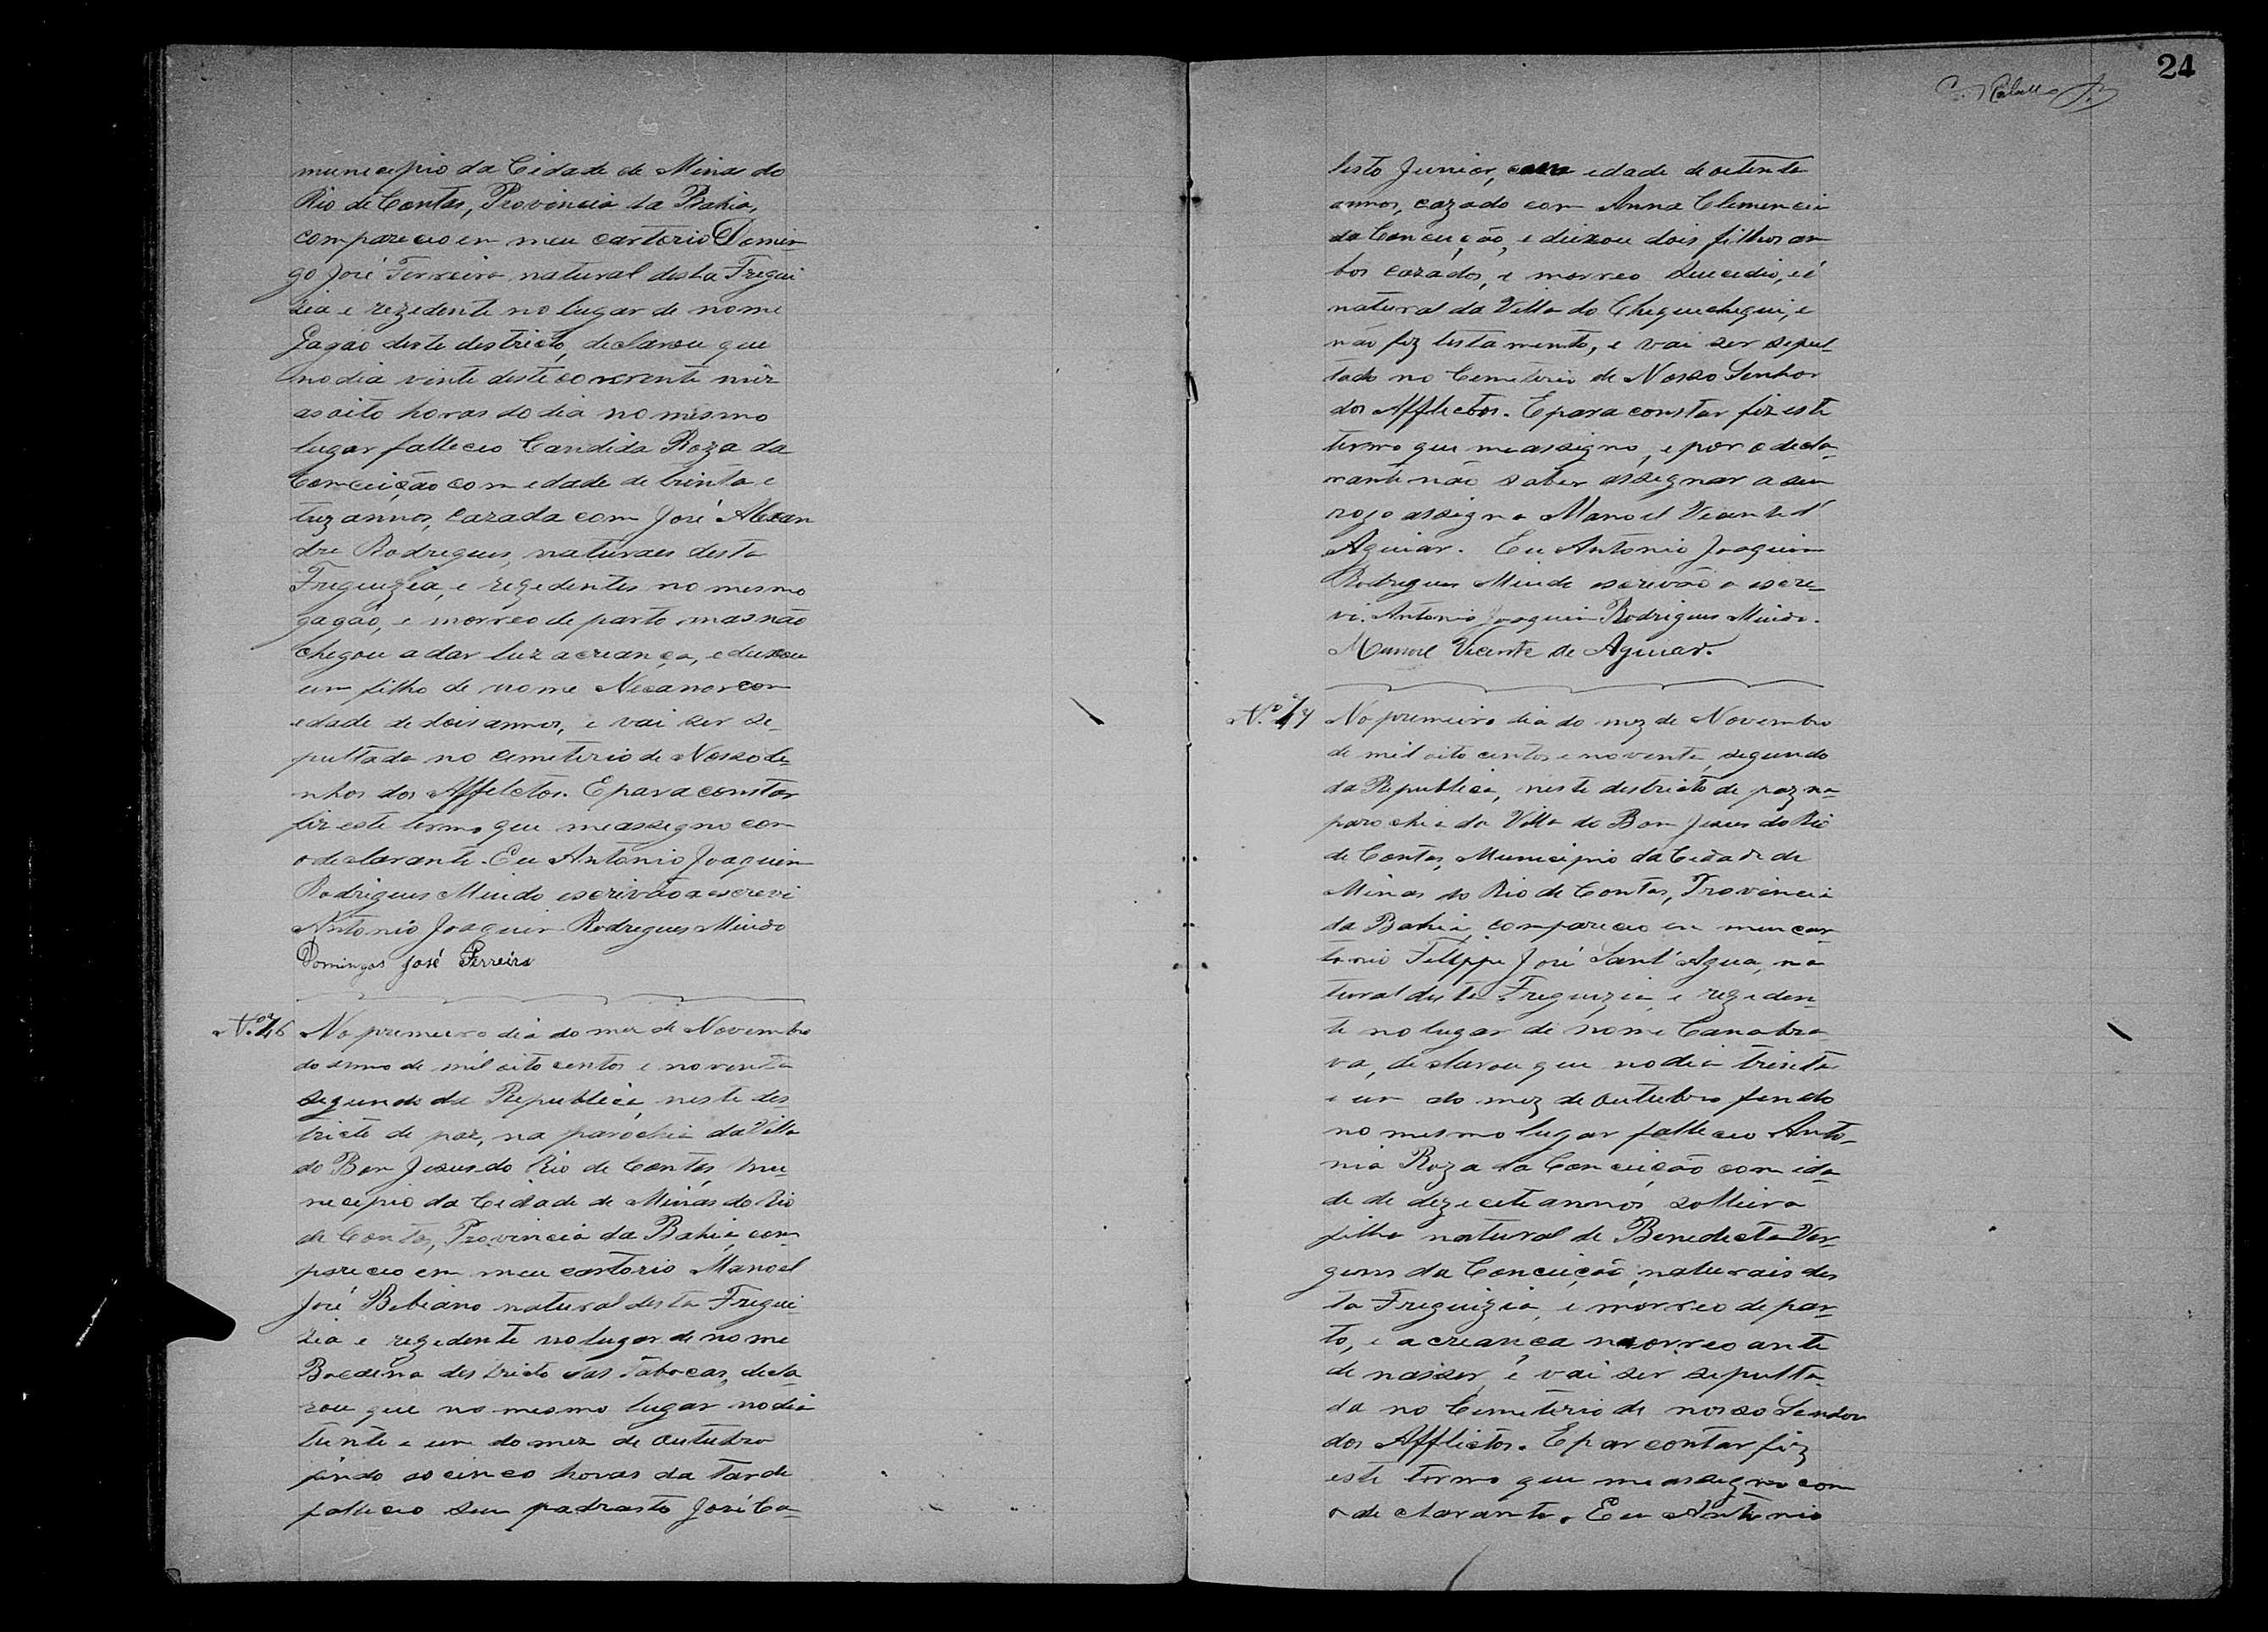 municipio da Cidade de Minas do
Rio de Contas, Provincia da Bahia,
compareceo em meu cartorio Domin-
go José Ferreira natural desta Fregui
zia e rezedente no lugar de nome
Gagão deste destricto, declarou que
no dia vinte deste corrente mêz
as oito horas do dia no mesmo
lugar falleceo Candida Roza da
Conceição com edade de trinta e
trez annos, cazada com José Alexan
dre Rodregues, naturaes desta
Freguizia, e rezedentes no mesmo
gagão, e morreo de parto mas não
chegou a dar luz a creança, e deixou
um filho de nome Necanor com
edade de dois annos, e vai ser se-
pultada no cemeterio de Nosso Se-
nhor dos Afflectos. E para constar
fiz este termo que me assegno com
o declarante. Eu Antonio Joaquim
Rodrigues Miudo escrivão o escrevi
Antonio Joaquim Rodregues Miudo
Domingos José Ferreira
N.º 46 No premeiro dia do mez de Novembro
do anno de mil oito centos e noventa
segundo da Republica, neste des
tricto de paz, na parochia da Villa
do Bom Jesus do Rio de Contas, mu
necipio da Cidade de Minas do Rio
de Contas, Provincia da Bahia, com
pareceo em meu cartorio Manoel
José Bebiano natural desta Fregui
zia e rezedente no lugar de nome
destricto das Tabocas, decla
rou que no mesmo lugar no dia
trinta e um do mez de Outubro
findo as cinco horas da tarde
falleceo seu padrasto José Ca-
24
listo Junior, com edade de oitenta
annos, cazado com Anna Clemencia
da Conceição, e deixou dois filhos am
bos cazados, e morreo Suecedio, e é
natural da Villa do Chequechequi, e
não fez testamento, e vai ser sepul-
tado no Cemeterio de Nosso Senhor
dos Afflictos. E para constar fiz este
termo que me assegno, e por o decla-
rante não saber assegnar a seu
rogo assigna Manoel Vicente d'
Aguiar. Eu Antonio Joaquim
Rodregues Miudo escrivão o escre-
vi. Antonio Joaquim Rodrigues Miudo.
Manoel Vicente de Aguiar.
N.º 47 No premeiro dia do mez de Novembro
de mil oito centos e noventa, segundo
da Republica, neste destricto de paz na
parochia da Villa do Bom Jesus do Rio
de Contas, Municipio da Cidade de
Minas do Rio de Contas, Provincia
da Bahia, compareceo em meu car
torio Felippe José Sant'Agua, na
tural desta Freguizia, e rezeden
te no lugar de nome Canabra-
va, declarou que no dia trinta
e um do mez de Outubro findo
no mesmo lugar falleceo Anto-
nia Roza da Conceição com ida-
de de dezecete annos solteira
filha natural de Benedicta Ver-
gens da Conceição, naturais des
ta Freguizia, e morreo de par
to, e a creança morreo ante
de nasser, e vai ser sepulta-
da no Cemeterio de nosso Senhor
dos Afflictos. E par contar fiz
este termo que me assegno com
o declarante. Eu Antonio